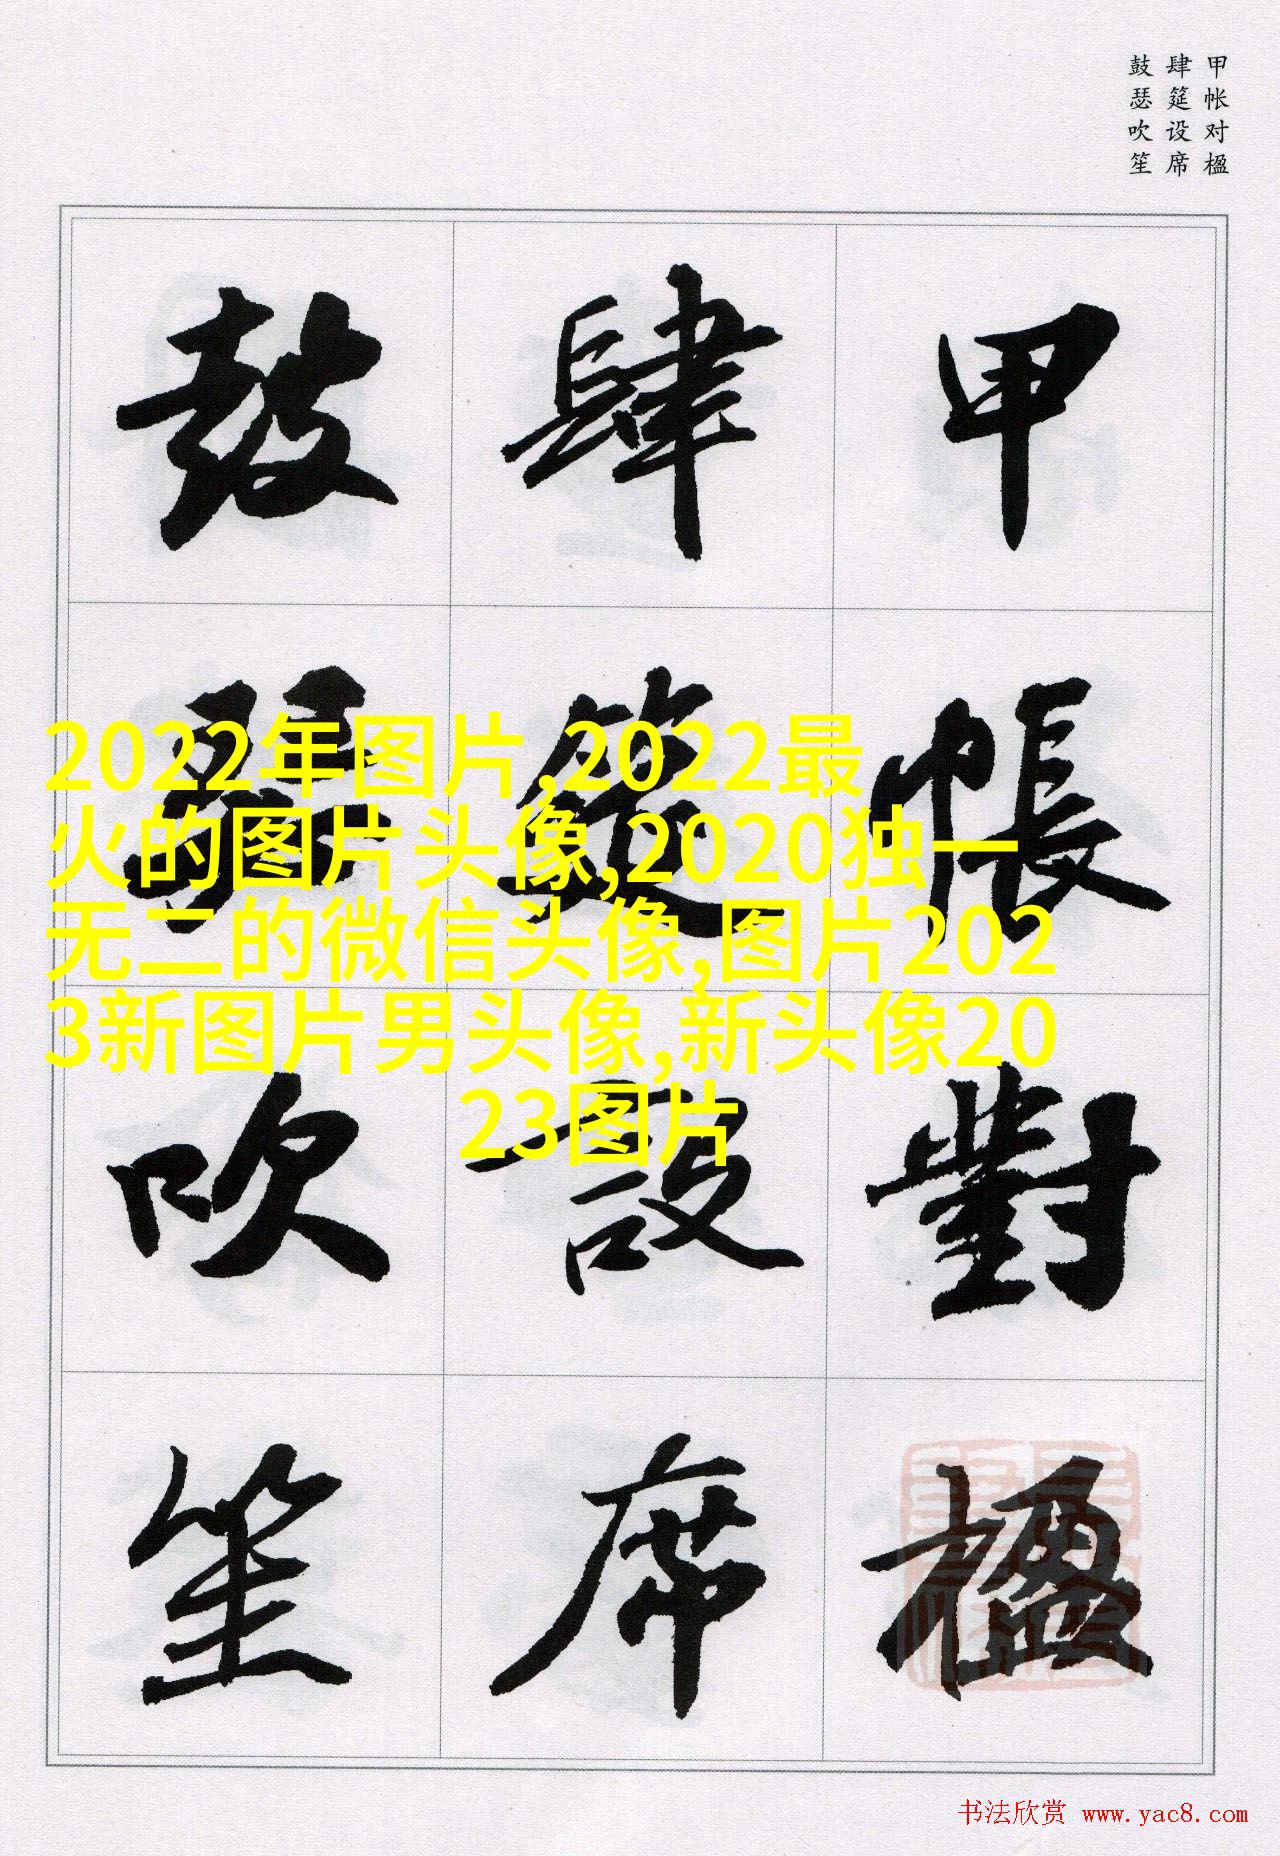 甲帐对楹
肆筵设席
鼓瑟吹笙
甲帳對楹
肆筵設席
鼓瑟吹笙
2022年图片,2022最
火的图片头像,2020独一
无二的微信头像,图片202
3新图片男头像,新头像20
23图片
书法欣赏 www.yac8.com